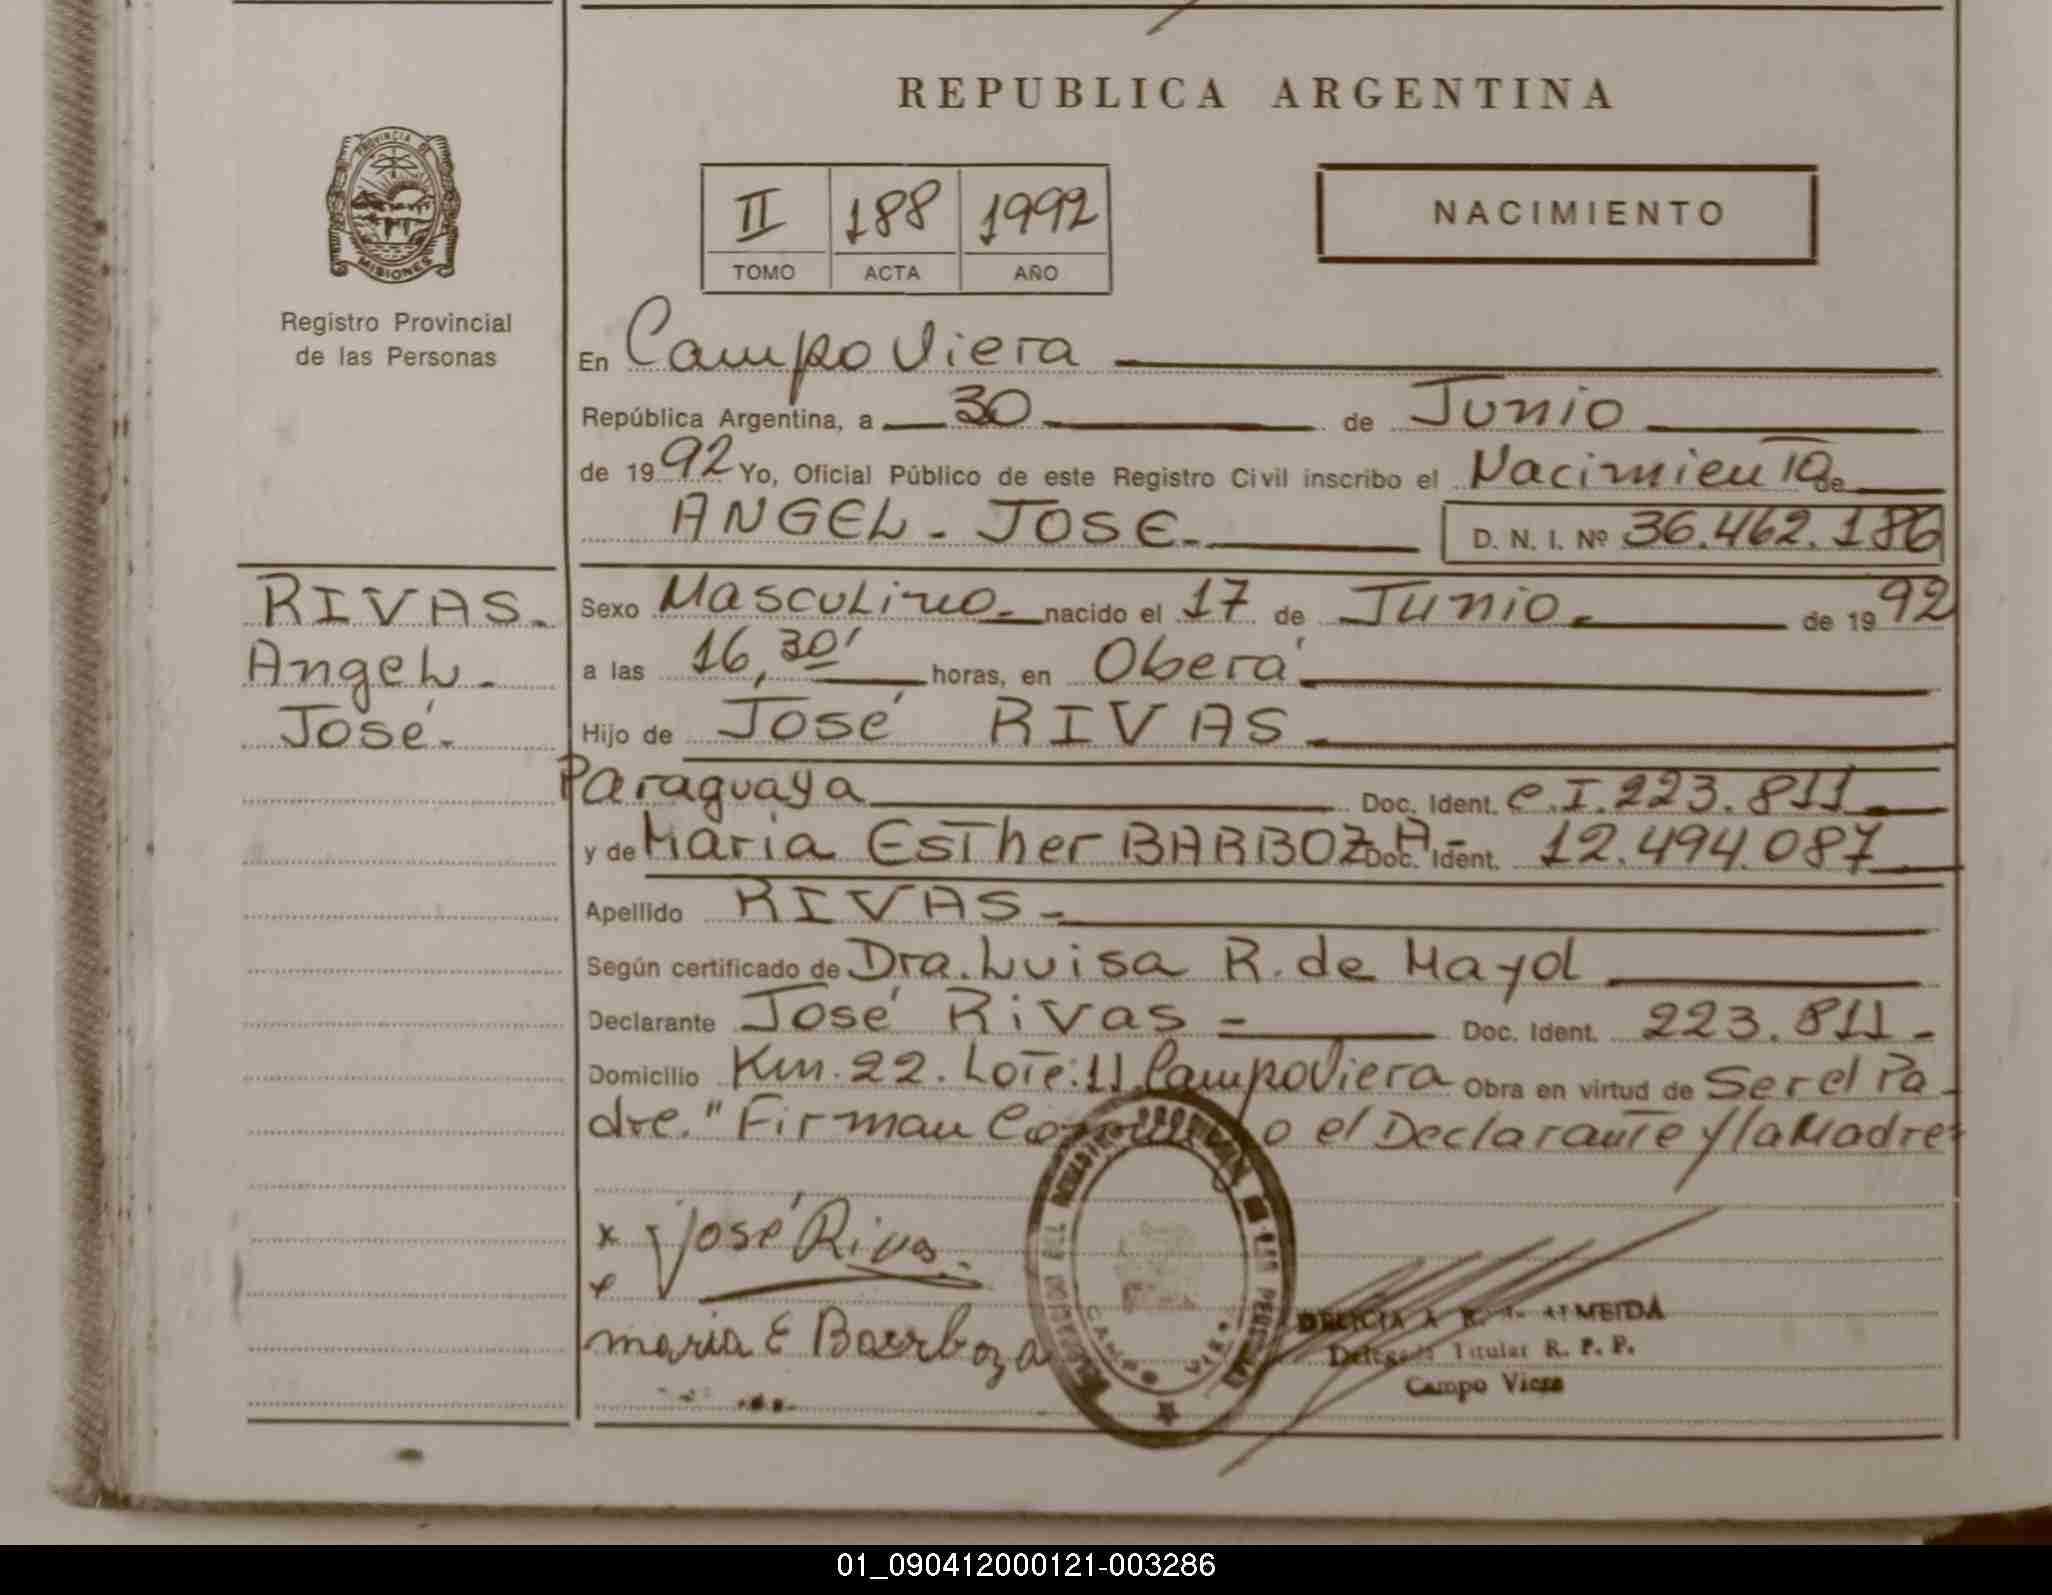 REPUBLICA ARGENTINA
PROVINCIA DE
MISIONES
Registro Provincial
de las Personas
II 188 1992
TOMO ACTA AÑO
NACIMIENTO
En Campo Viera
República Argentina, a 30 de Junio
de 1992 Yo, Oficial Público de este Registro Civil inscribo el Nacimiento de
ANGEL - JOSE - D. N. I. Nº 36.462.186
RIVAS -
Angel -
José -
Sexo Masculino - nacido el 17 de Junio - de 1992
a las 16,30' horas, en Oberá
Hijo de José RIVAS
Paraguaya Doc. Ident. C.I. 223.811
y de Maria Esther BARBOZA - Doc. Ident. 12.494.087
Apellido RIVAS -
Según certificado de Dra. Luisa R. de Mayol
Declarante José Rivas - Doc. Ident. 223.811 -
Domicilio Km. 22. Lote: 11 Campo Viera Obra en virtud de Ser el Pa-
dre." Firman el Declarante y la Madre
x José Rivas
maria E Barboza
DELICIA A ALMEIDA
Delegada Titular R. P. P.
Campo Viera
01_090412000121-003286